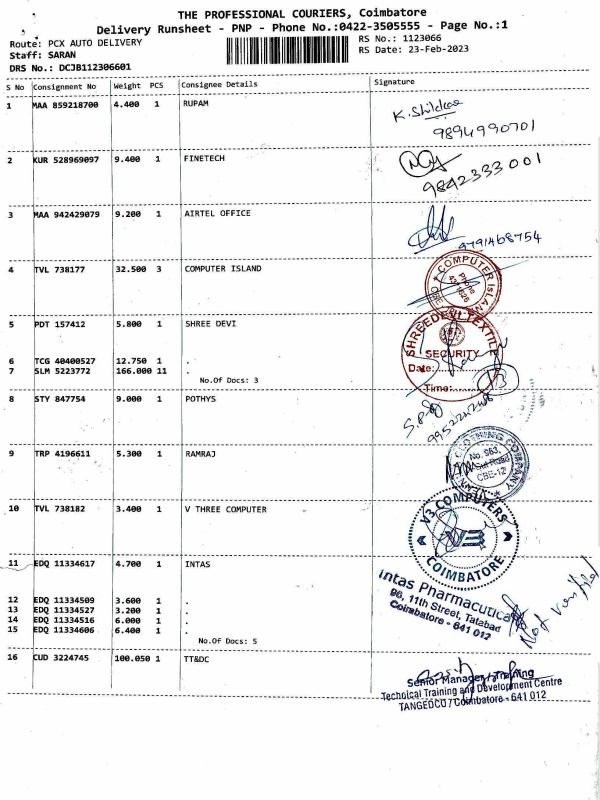 THE PROFESSIONAL COURIERS, Coimbatore
Delivery Runsheet - PNP - Phone No.:0422-3505555 - Page No.:1
Route: PCX AUTO DELIVERY RS No.: 1123066
Staff: SARAN RS Date: 23-Feb-2023
DRS No.: DCJB112306601
S No Consignment No Weight PCS Consignee Details Signature
1 MAA 859218700 4.400 1 RUPAM
9894990701
2 KUR 528969097 9.400 1 FINETECH
9842333001
3 MAA 942429079 9.200 1 AIRTEL OFFICE
9791468754
4 TVL 738177 32.500 3 COMPUTER ISLAND
COMPUTER ISLAND
Phone
5 PDT 157412 5.800 1 SHREE DEVI
SHREEDEVI TEXTILE
SECURITY
Date:
Time:
6 TCG 40400527 12.750 1 .
7 SLM 5223772 166.000 11 .
No.Of Docs: 3
8 STY 847754 9.000 1 POTHYS
9 TRP 4196611 5.300 1 RAMRAJ
CLOTHING COMPANY
CBE-12
10 TVL 738182 3.400 1 V THREE COMPUTER
V3 COMPUTERS
V3
COIMBATORE
11 EDQ 11334617 4.700 1 INTAS
Intas Pharmaceutical
96, 11th Street, Tatabad
Coimbatore - 641 012
Not verified
12 EDQ 11334509 3.600 1 .
13 EDQ 11334527 3.200 1 .
14 EDQ 11334516 6.000 1 .
15 EDQ 11334606 6.400 1 .
No.Of Docs: 5
16 CUD 3224745 100.050 1 TT&DC
Senior Manager / Training
Technical Training and Development Centre
TANGEDCO / Coimbatore - 641 012